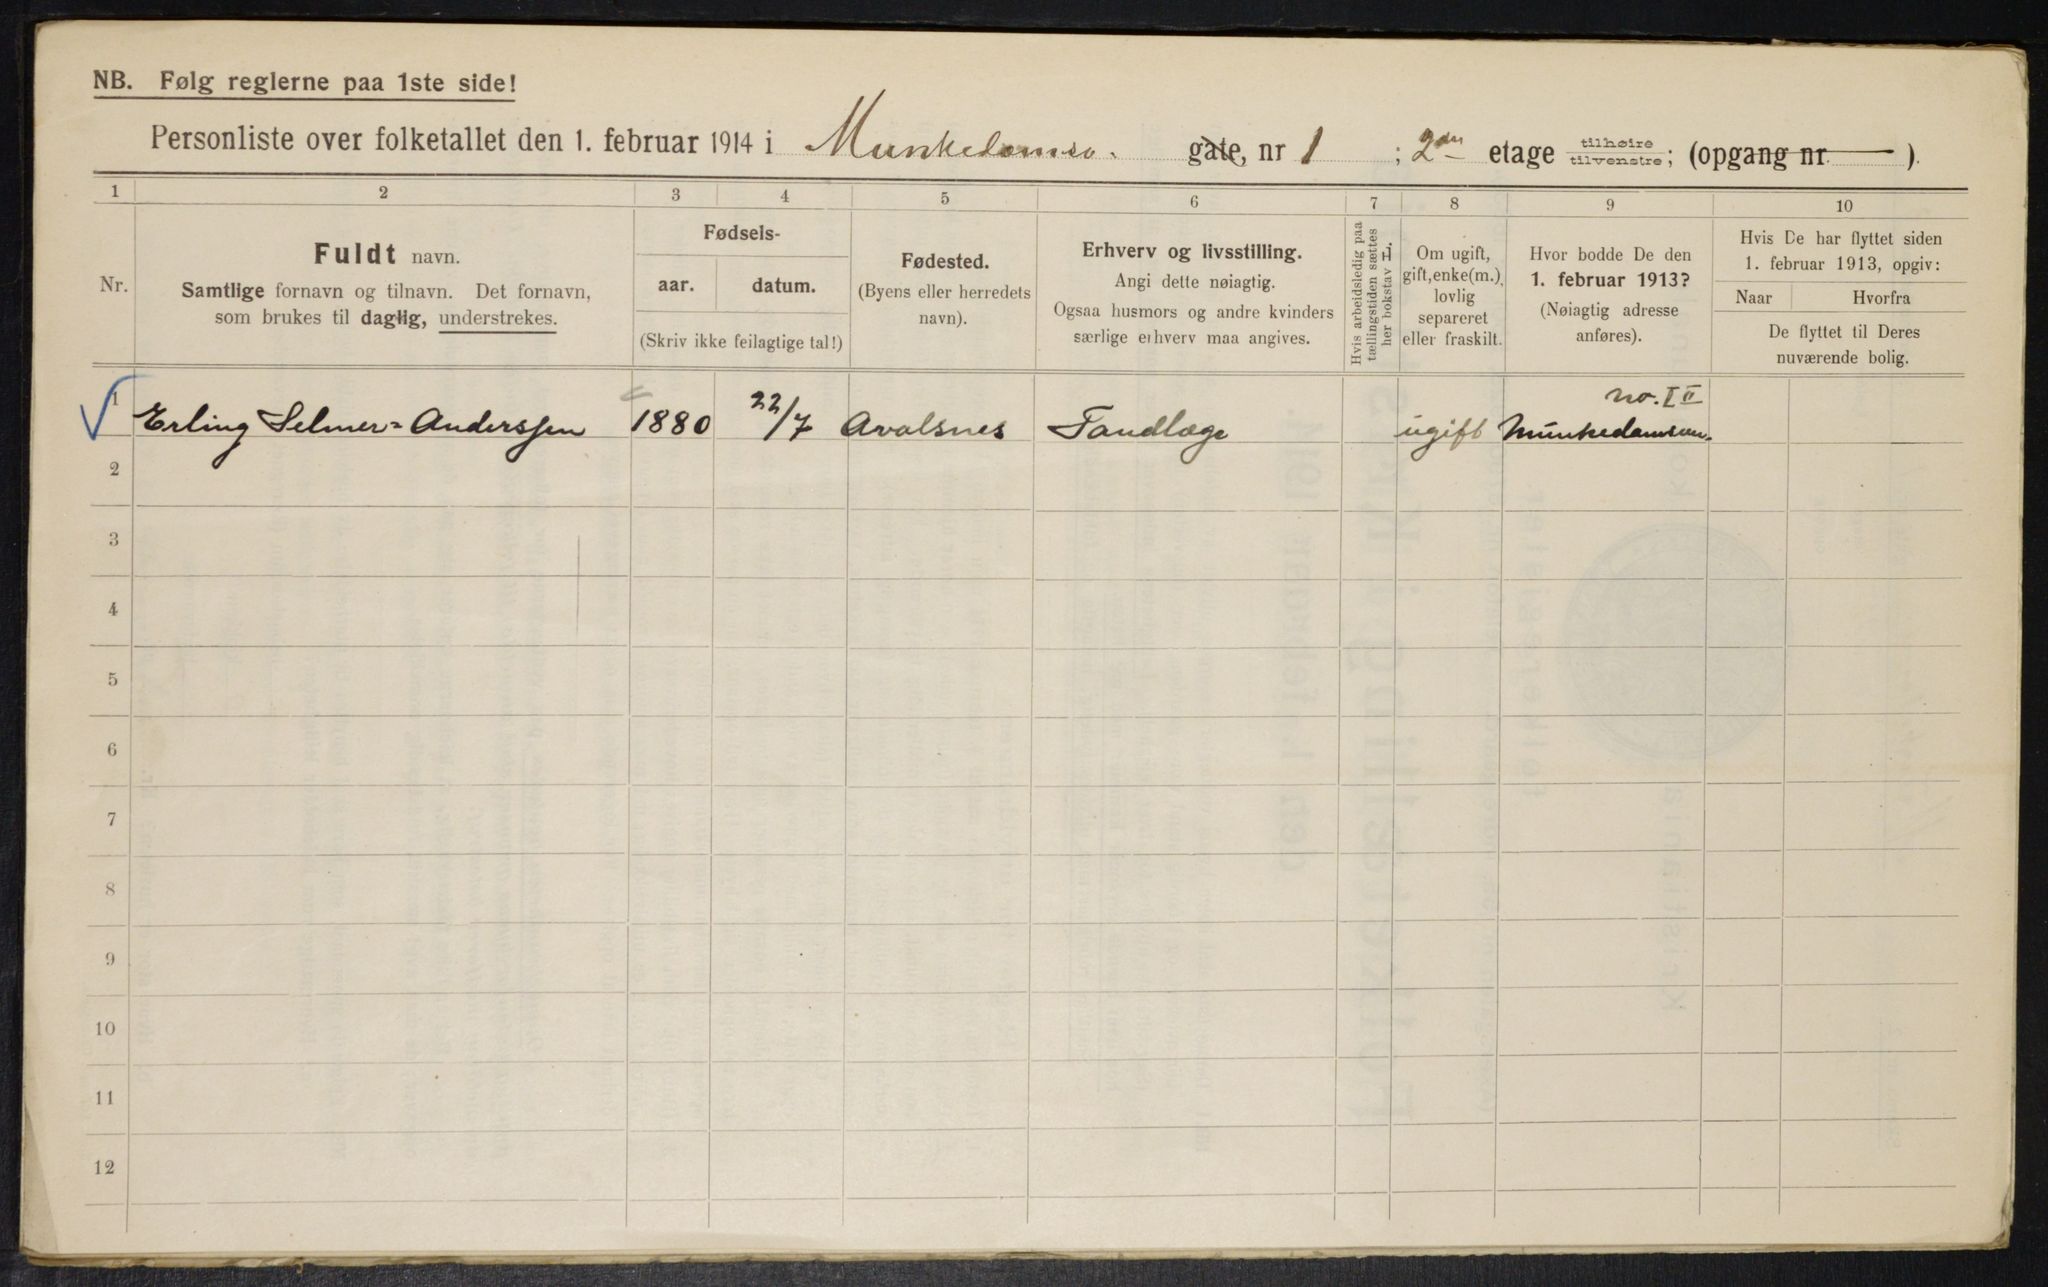 NB. Følg reglerne paa 1ste side!
Personliste over folketallet den 1. februar 1914 i Munkedamsv. gate, nr 1 ; 2den etage tilhøire tilvenstre; (opgang nr. — ).
1 2 3 4 5 6 7 8 9 10
Nr.
Fuldt navn.
Samtlige fornavn og tilnavn. Det fornavn,
som brukes til daglig, understrekes.
Fødsels-
aar. datum.
(Skriv ikke feilagtige tal!)
Fødested.
(Byens eller herredets
navn).
Erhverv og livsstilling.
Angi dette nøiagtig.
Ogsaa husmors og andre kvinders
særlige erhverv maa angives.
Hvis arbeidsledig paa
tællingstiden sættes
her bokstav L.
Om ugift,
gift, enke(m.),
lovlig
separeret
eller fraskilt.
Hvor bodde De den
1. februar 1913?
(Nøiagtig adresse
anføres).
Hvis De har flyttet siden
1. februar 1913, opgiv:
Naar Hvorfra
De flyttet til Deres
nuværende bolig.
no. I II
1 Erling Selmer-Anderssen 1880 22/7 Avalsnes Tandlæge ugift Munkedamsvn.
2
3
4
5
6
7
8
9
10
11
12